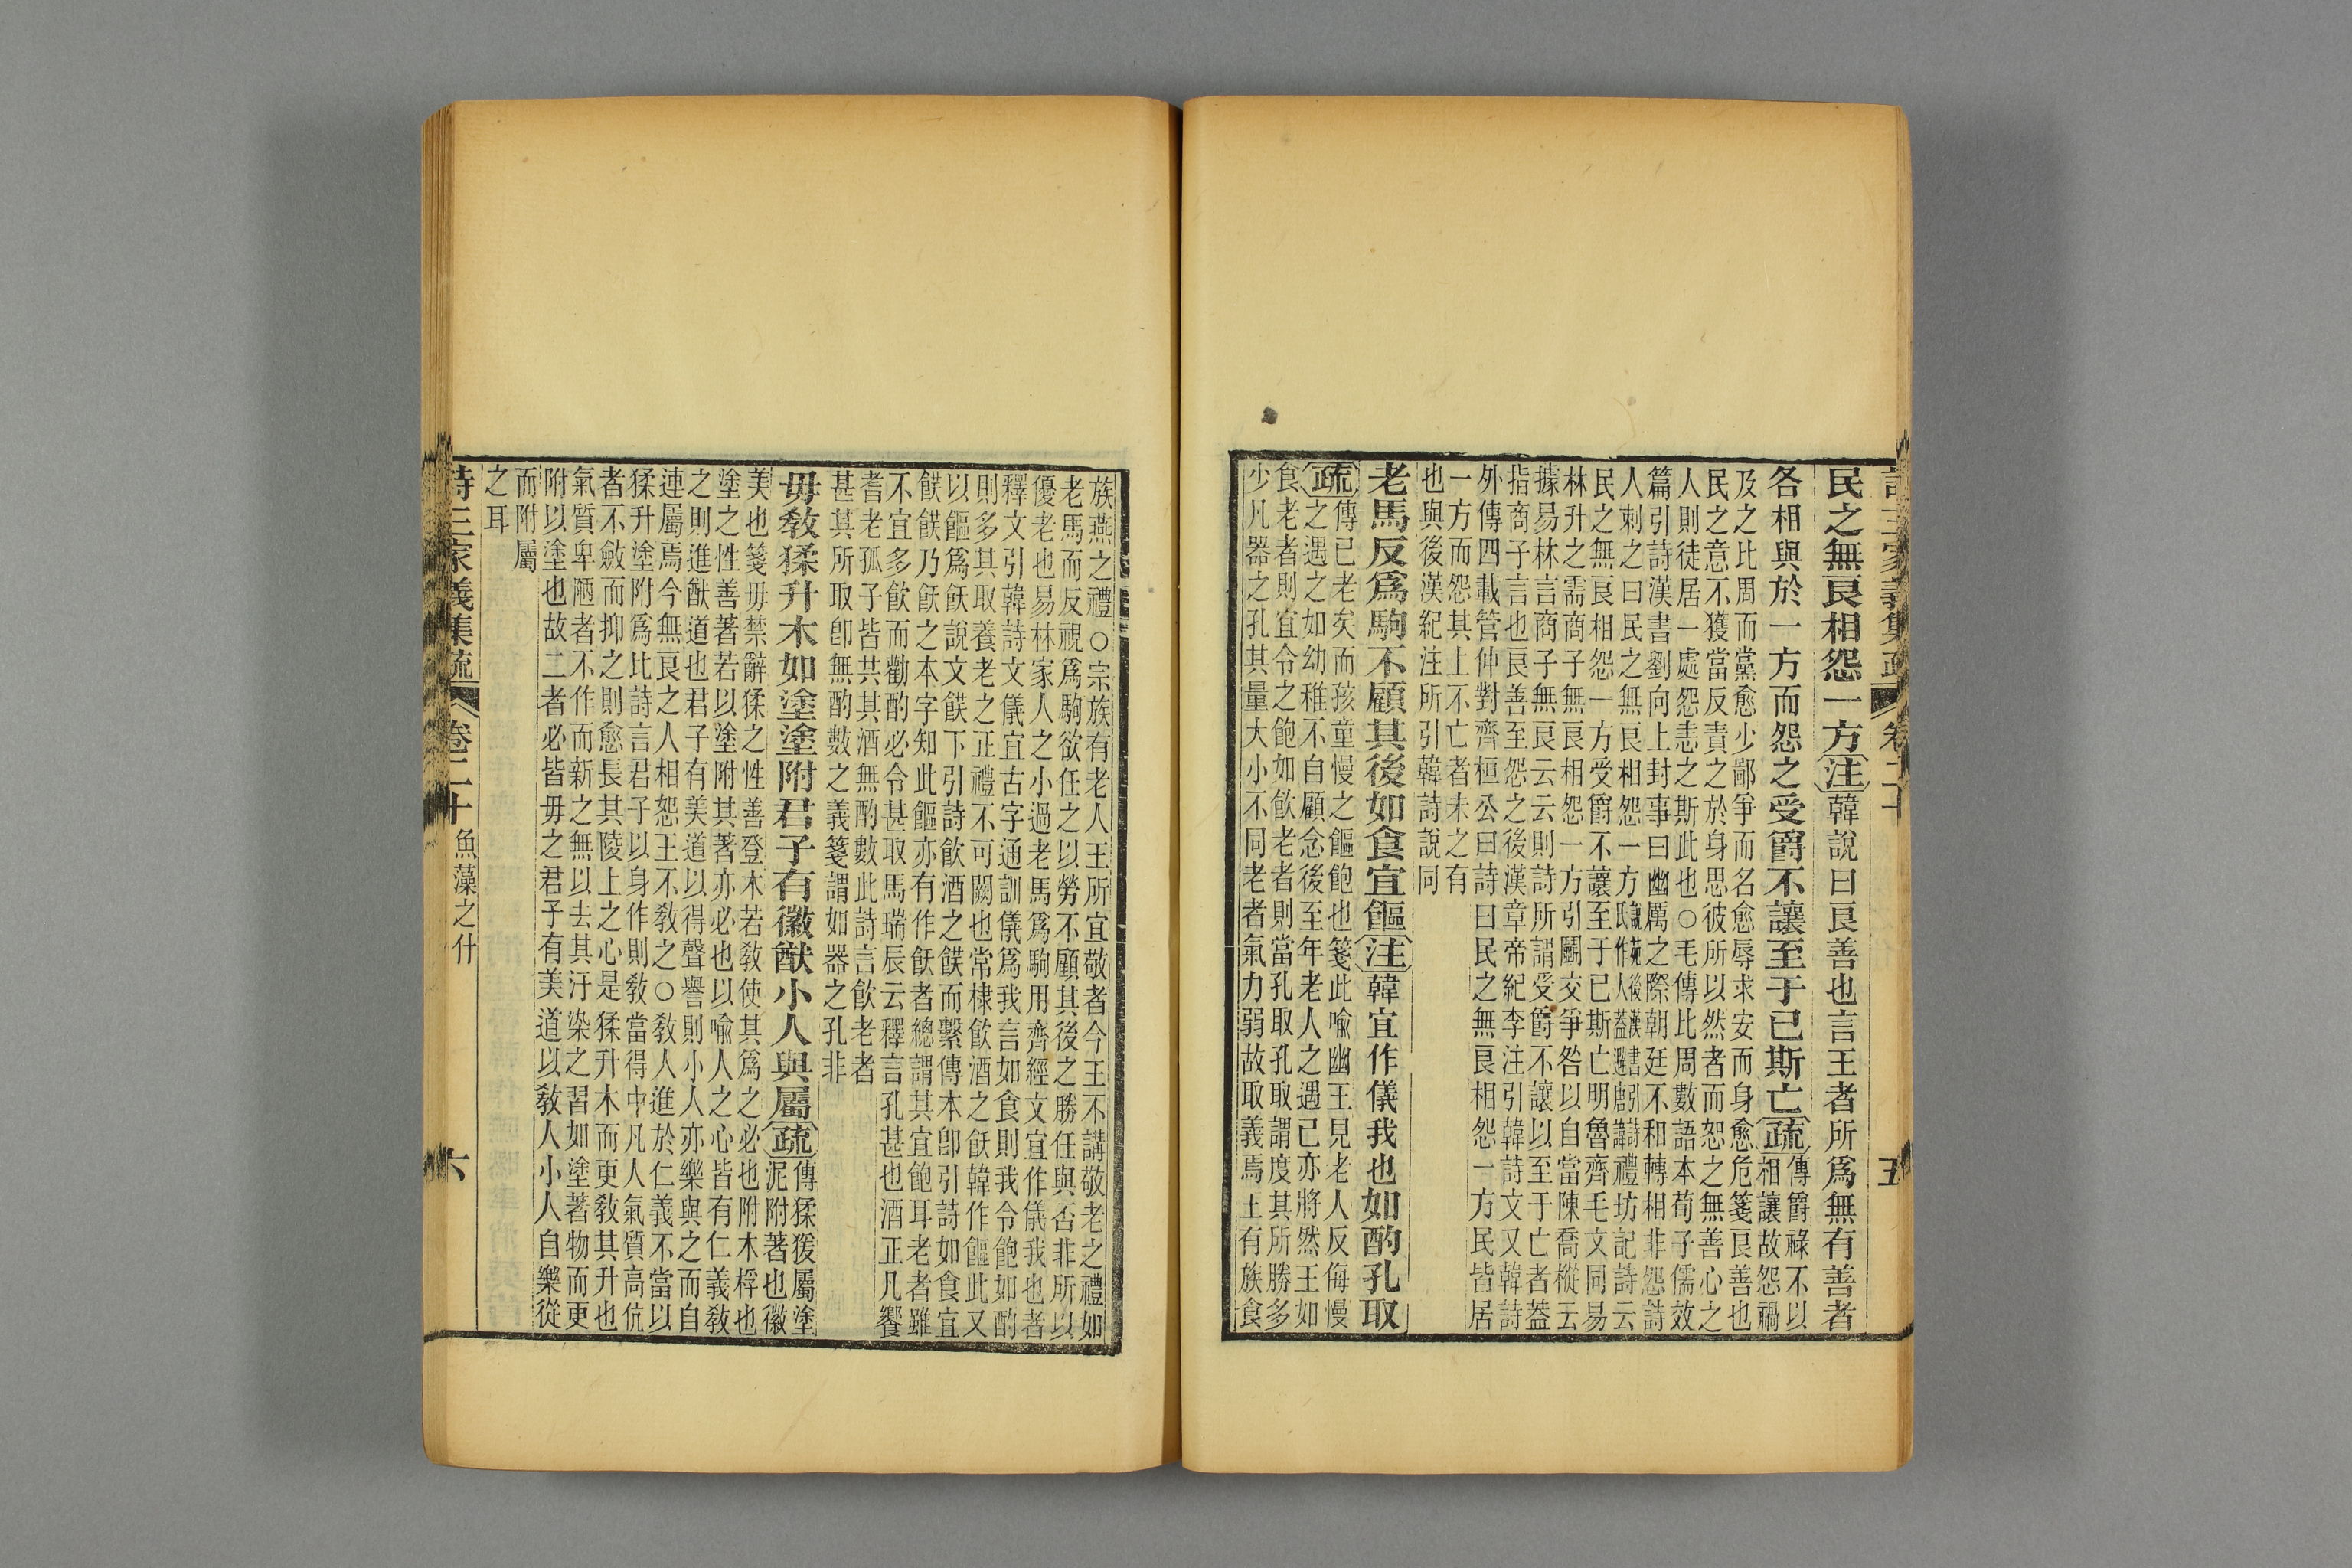 詩三家義集疏 卷二十 五
民之無良相怨一方注韓說曰良善也言王者所爲無有善者
各相與於一方而怨之受爵不讓至于已斯亡疏傳爵祿不以
相讓故怨禍
及之比周而黨愈少鄙爭而名愈辱求安而身愈危箋良善也
民之意不獲當反責之於身思彼所以然者而恕之無善心之
人則徒居一處怨恚之斯此也○毛傳比周數語本荀子儒效
篇引詩漢書劉向上封事曰幽厲之際朝廷不和轉相非怨詩
人刺之曰民之無良相怨一方說苑後漢書引詩禮坊記詩云
氏作人蓋避唐諱
民之無良相怨一方受爵不讓至于已斯亡明魯齊毛文同易
林升之需商子無良相怨一方引鬭交爭咎以自當陳喬樅云
據易林言商子無良云云則詩所謂受爵不讓以至于亡者蓋
指商子言也良善至怨之後漢章帝紀李注引韓詩文又韓詩
外傳四載管仲對齊桓公曰詩曰民之無良相怨一方民皆居
一方而怨其上不亡者未之有
也與後漢紀注所引韓詩說同
老馬反爲駒不顧其後如食宜饇注韓宜作儀我也如酌孔取
疏傳已老矣而孩童慢之饇飽也箋此喻幽王見老人反侮慢
之遇之如幼稚不自顧念後至年老人之遇己亦將然王如
食老者則宜令之飽如飲老者則當孔取孔取謂度其所勝多
少凡器之孔其量大小不同老者氣力弱故取義焉王有族食
族燕之禮○宗族有老人王所宜敬者今王不講敬老之禮如
老馬而反視爲駒欲任之以勞不顧其後之勝任與否非所以
優老也易林家人之小過老馬爲駒用齊經文宜作儀我也者
釋文引韓詩文儀宜古字通訓儀爲我言如食則我令飽如酌
則多其取養老之正禮不可闕也常棣飲酒之飫韓作饇此又
以饇爲飫說文䬳下引詩飲酒之䬳而繫傳本卽引詩如食宜
䬳䬳乃飫之本字知此饇亦有作飫者總謂其宜飽耳老者雖
不宜多飮而勸酌必令甚取馬瑞辰云釋言孔甚也酒正凡饗
耆老孤子皆共其酒無酌數此詩言飮老者
甚其所取卽無酌數之義箋謂如器之孔非
毋敎猱升木如塗塗附君子有徽猷小人與屬疏傳猱猨屬塗
泥附著也徽
美也箋毋禁辭猱之性善登木若敎使其爲之必也附木桴也
塗之性善著若以塗附其著亦必也以喻人之心皆有仁義敎
之則進猷道也君子有美道以得聲譽則小人亦樂與之而自
連屬焉今無良之人相怨王不敎之○敎人進於仁義不當以
猱升塗附爲比詩言君子以身作則敎當得中凡人氣質高伉
者不斂而抑之則愈長其陵上之心是猱升木而更敎其升也
氣質卑陋者不作而新之無以去其汙染之習如塗著物而更
附以塗也故二者必皆毋之君子有美道以敎人小人自樂從
而附屬
之耳
詩三家義集疏 卷二十 魚藻之什 六